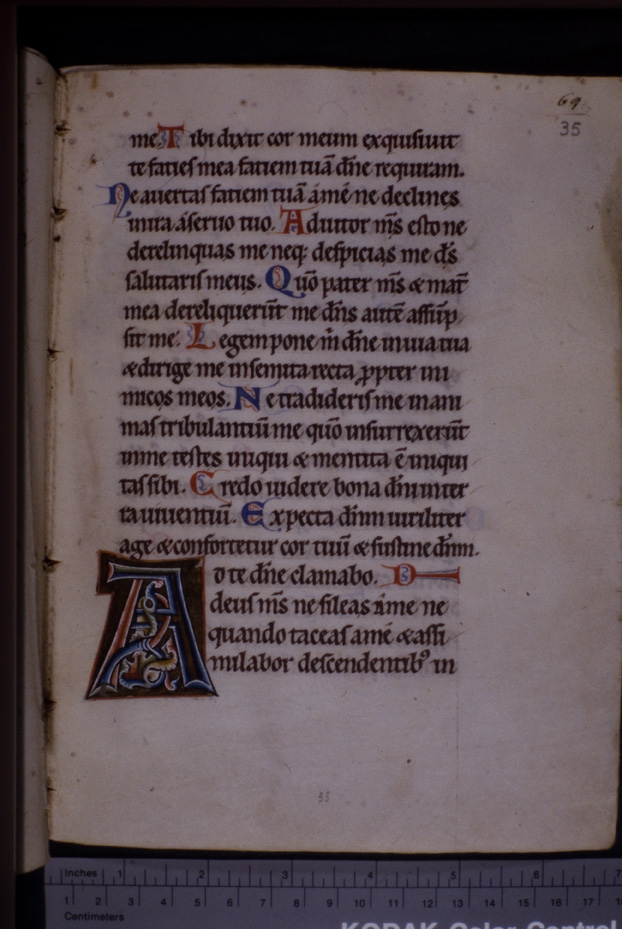 69
35
me. Tibi dixit cor meum exquisiuit
te facies mea faciem tuā dn̄e requiram.
Ne auertas faciem tuā ame ne declines
inira a seruo tuo. Adiutor m̄s esto ne
derelinquas me neq; despicias me d̄s
salutaris meus. Qūo pater m̄s & mat̄
mea dereliquerūt me dn̄s autē assūp
sit me. Legem pone m̄ dn̄e inuia tua
& dirige me insemita recta ꝓpter ini
micos meos. Ne tradideris me inani
mas tribulantiū me qūo insurrexerūt
inme testes iniqui & mentita ē iniqui
tas sibi. Credo uidere bona dn̄i inter
ra uiuentiū. Expecta dn̄m uiriliter
age & confortetur cor tuū & sustine dn̄m.
Ad te dn̄e clamabo. Ds
deus m̄s ne sileas ame ne
quando taceas ame & assi
milabor descendentib⁹ in
35
Inches 1 2 3 4 5 6 7
1 2 3 4 5 6 7 8 9 10 11 12 13 14 15 16 17 18
Centimeters
KODAK Color Control